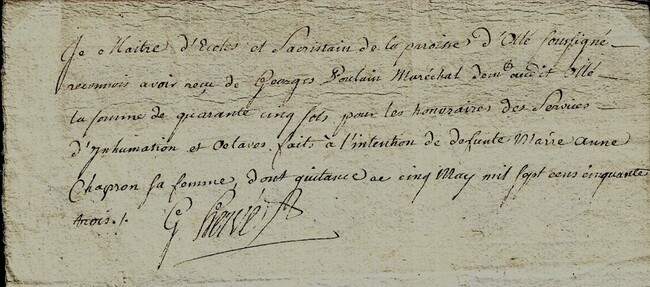 Je Maitre d'Ecoles et Sacristain de la paroisse d'Ollé soussigné
reconnois avoir reçu de Georges Poulain Maréchal demt audit Ollé
la somme de quarante cinq sols pour les honoraires des Services
d'Inhumation et Octaves faits à l'intention de defunte Marie Anne
Chapron sa femme, dont quitance ce cinq May mil sept cens cinquante
trois ./.
G Hervé